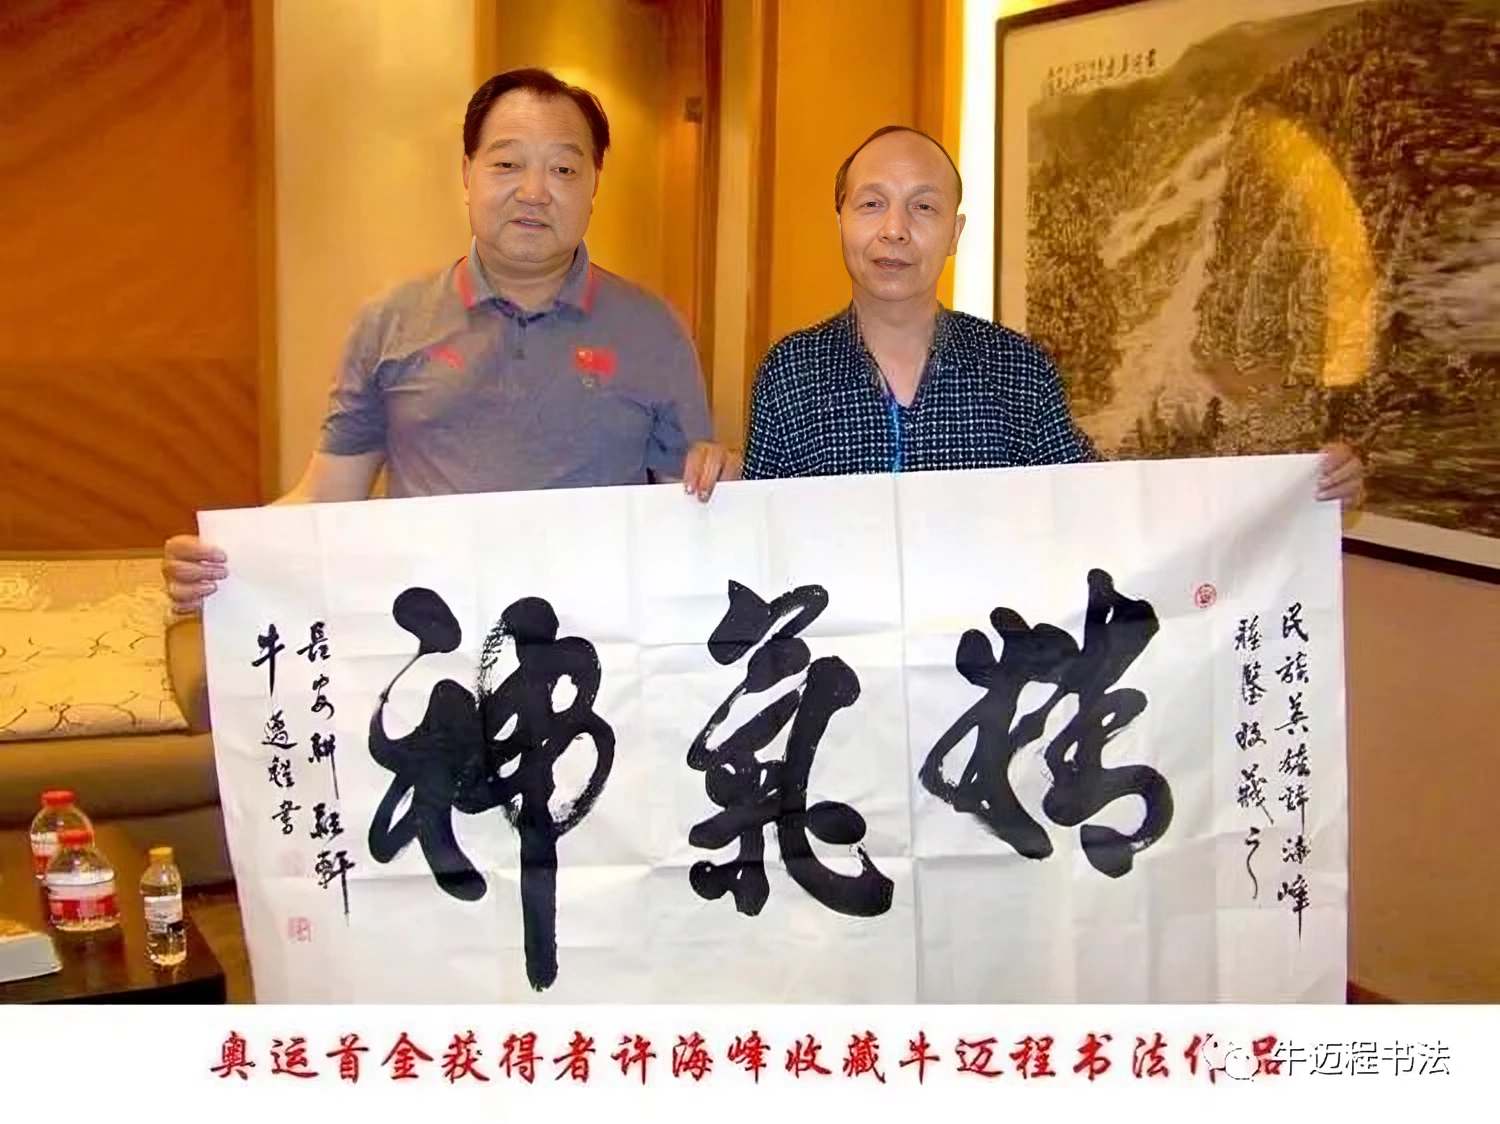 精氣神
民族英雄許海峰
雅鑒收藏之
長安耕耘軒
牛邁程書
奥运首金获得者许海峰收藏牛迈程书法作品
牛迈程书法